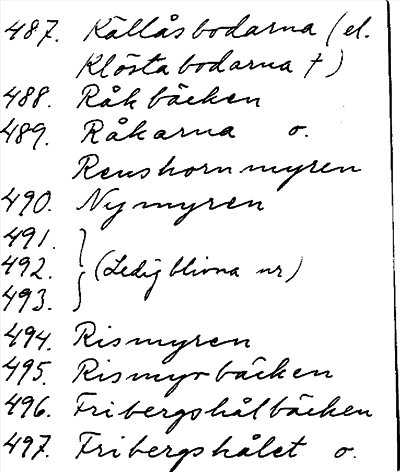 487. Kållåsbodarna (el.
Klöstabodarna †)
488. Råkbäcken
489. Råkarna o.
Renshornmyren
490. Nymyren
491.
492. (Ledigblivna nr)
493.
494. Rismyren
495. Rismyrbäcken
496. Fribergshålbäcken
497. Fribergshålet o.